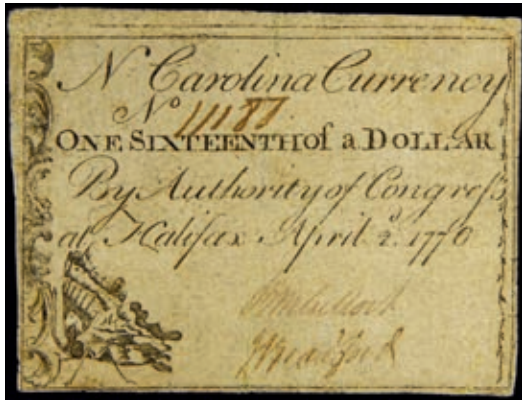 N Carolina Currency
No 11187
ONE SIXTEENTH of a DOLLAR
By Authority of Congress
at Halifax April 2d. 1776